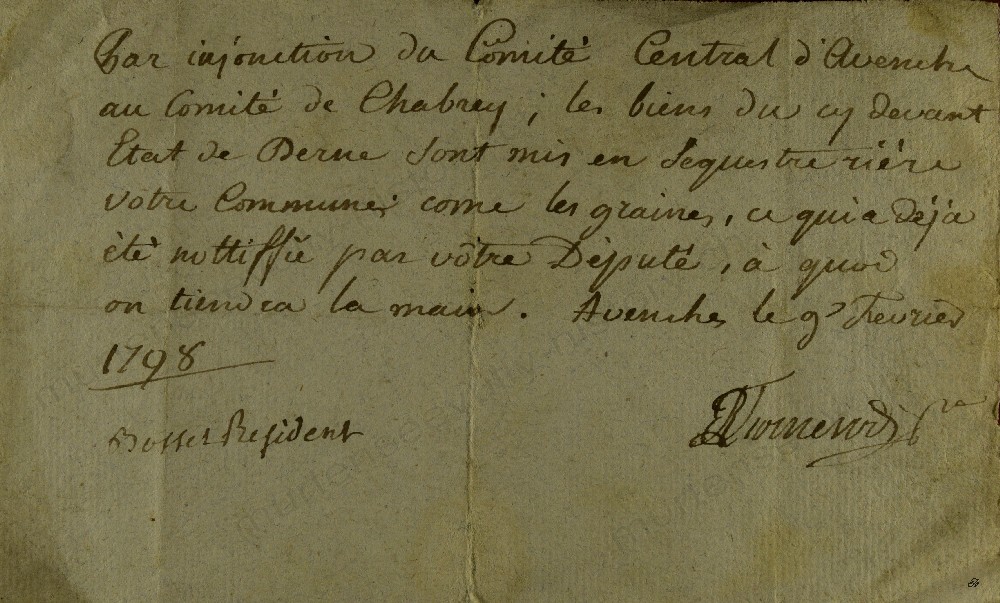 Par injonction du Comité Central d'Avenche
au Comité de Chabrey ; les biens du cy devant
Etat de Berne sont mis en sequestre rière
vôtre Commune, come les graines, ce qui a déja
été nottiffié par vôtre Député, à quoi
on tiendra la main. Avenches le 9e Fevrier
1798
Bosset President